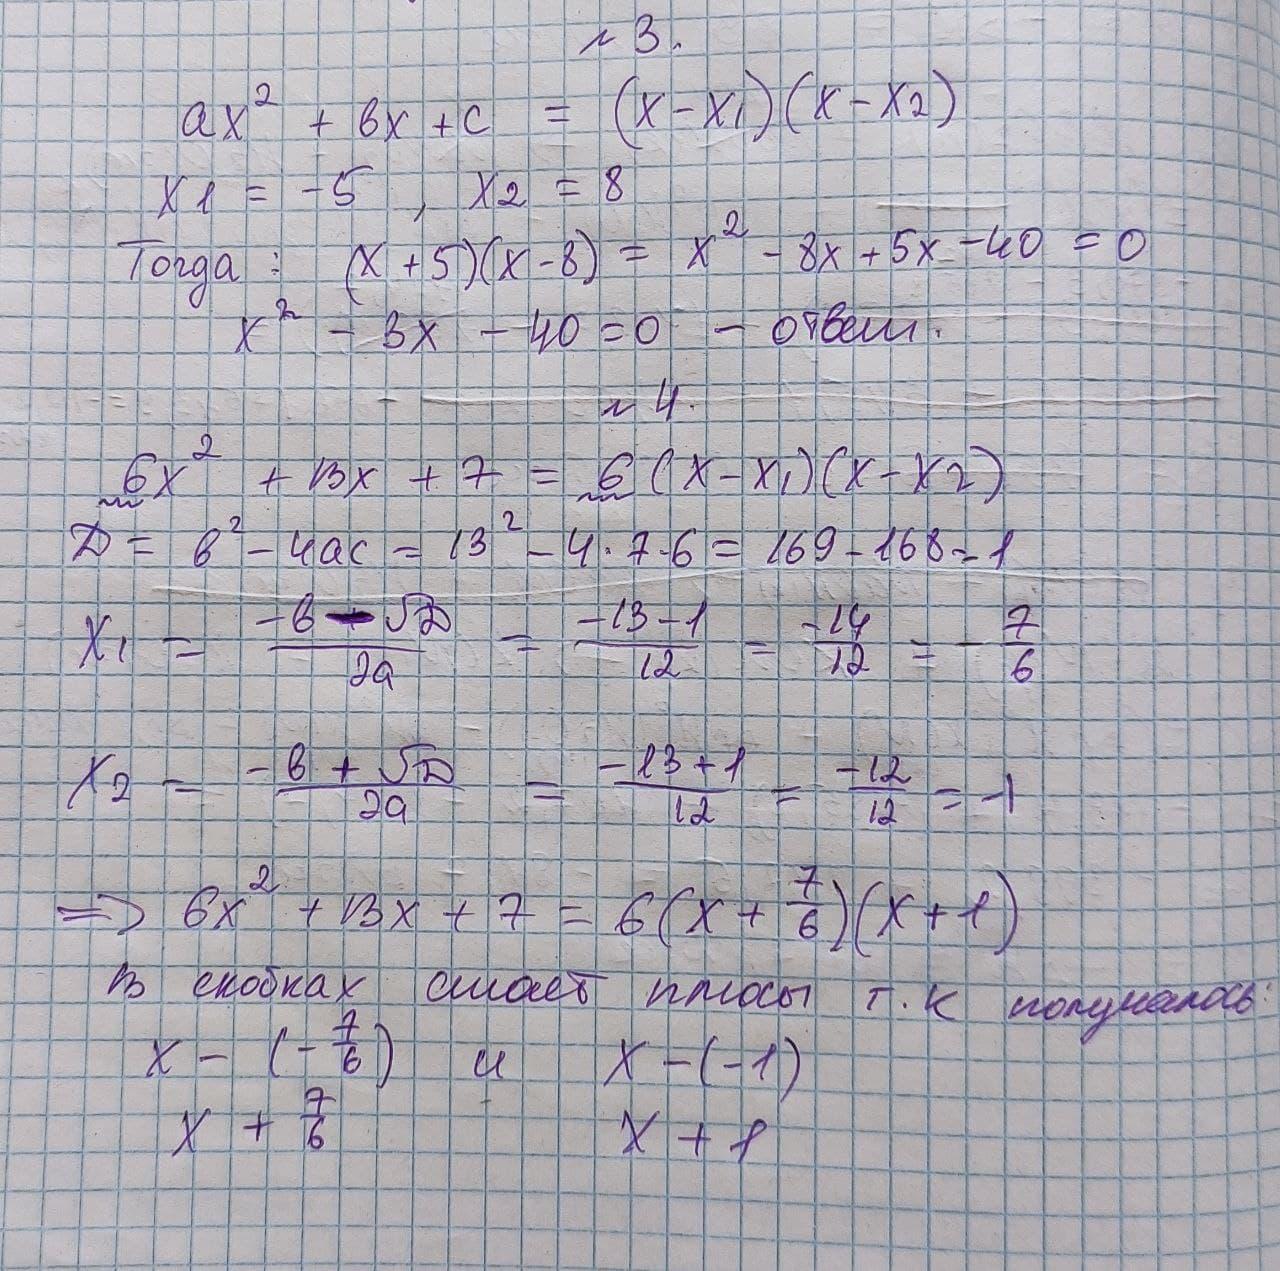 №3.
ax² + bx + c = (x - x₁)(x - x2)
x1 = -5 , x2 = 8
Тогда : (x + 5)(x - 8) = x² - 8x + 5x - 40 = 0
x² - 3x - 40 = 0 - ответ.
№4.
6x² + 13x + 7 = 6 (x - x₁)(x - x2)
D = b² - 4ac = 13² - 4 · 7 · 6 = 169 - 168 = 1
x₁ = (-b - √D)/2a = (-13 - 1)/12 = -14/12 = -7/6
x2 = (-b + √D)/2a = (-13 + 1)/12 = -12/12 = -1
=> 6x² + 13x + 7 = 6(x + 7/6)(x + 1)
В скобках стоят плюсы т.к получалось:
x - (-7/6) и x - (-1)
x + 7/6 x + 1